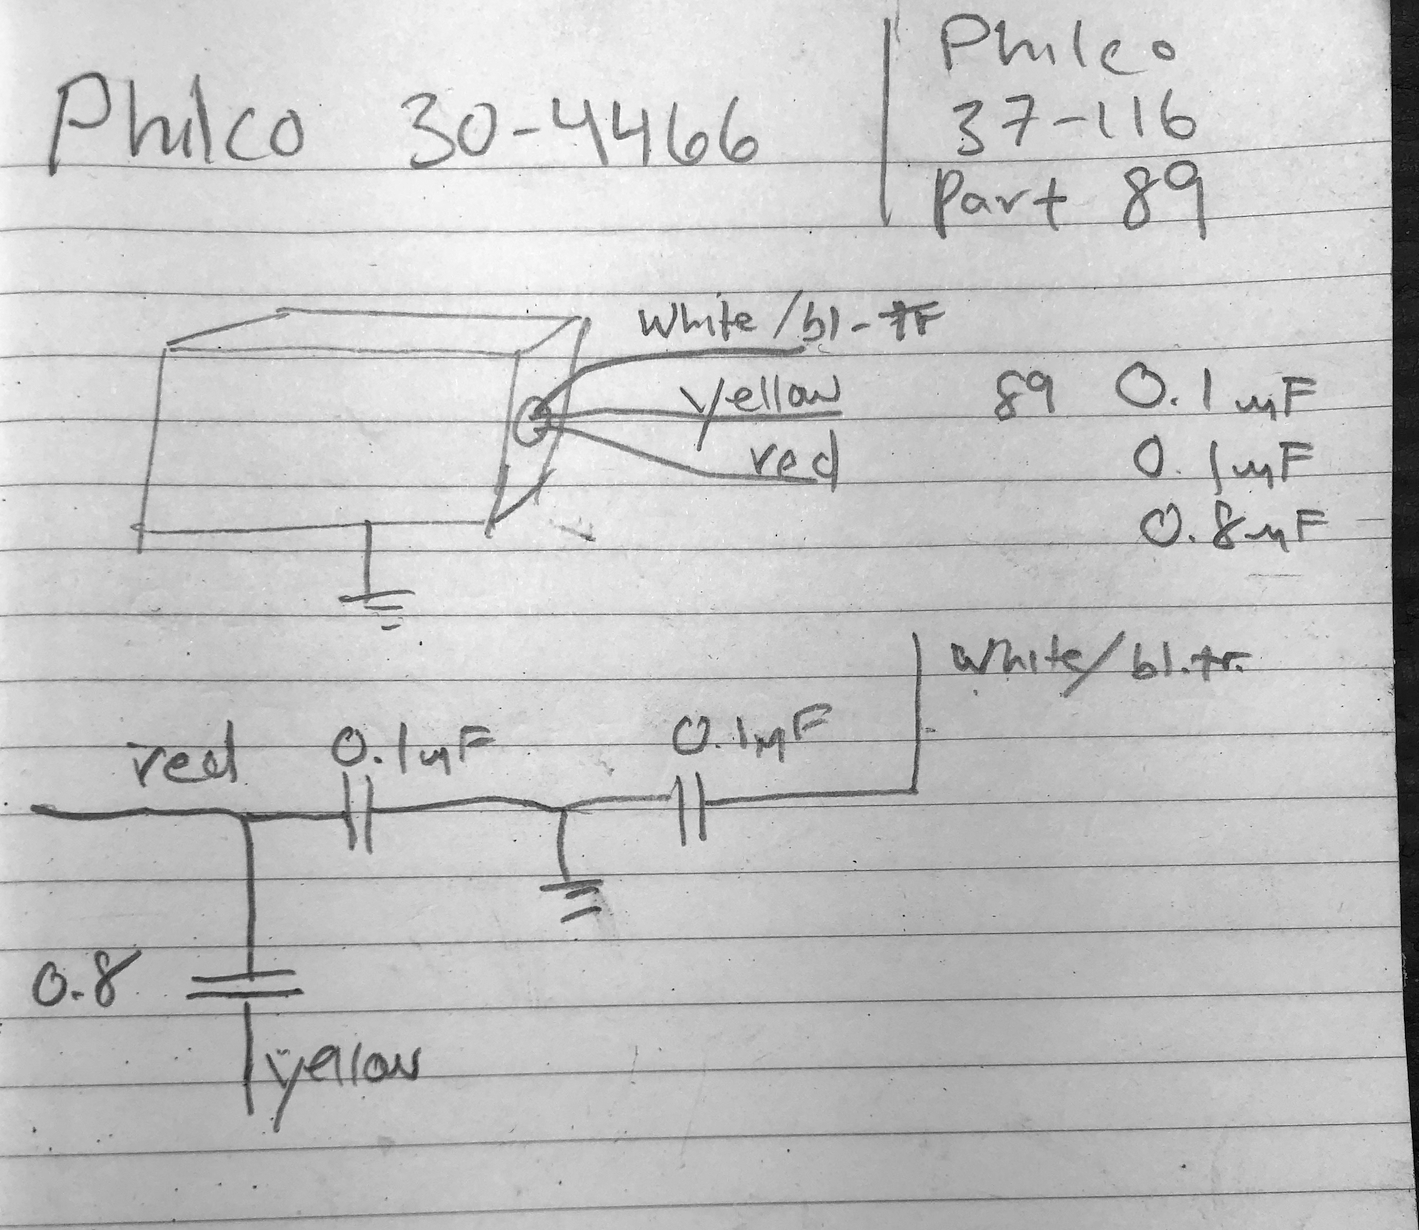 Philco 30-4466
Philco
37-116
Part 89
White/bl-tr
yellow
red
89 0.1 mF
0.1mF
0.8mF
White/bl.tr.
red 0.1mF 0.1mF
0.8
yellow